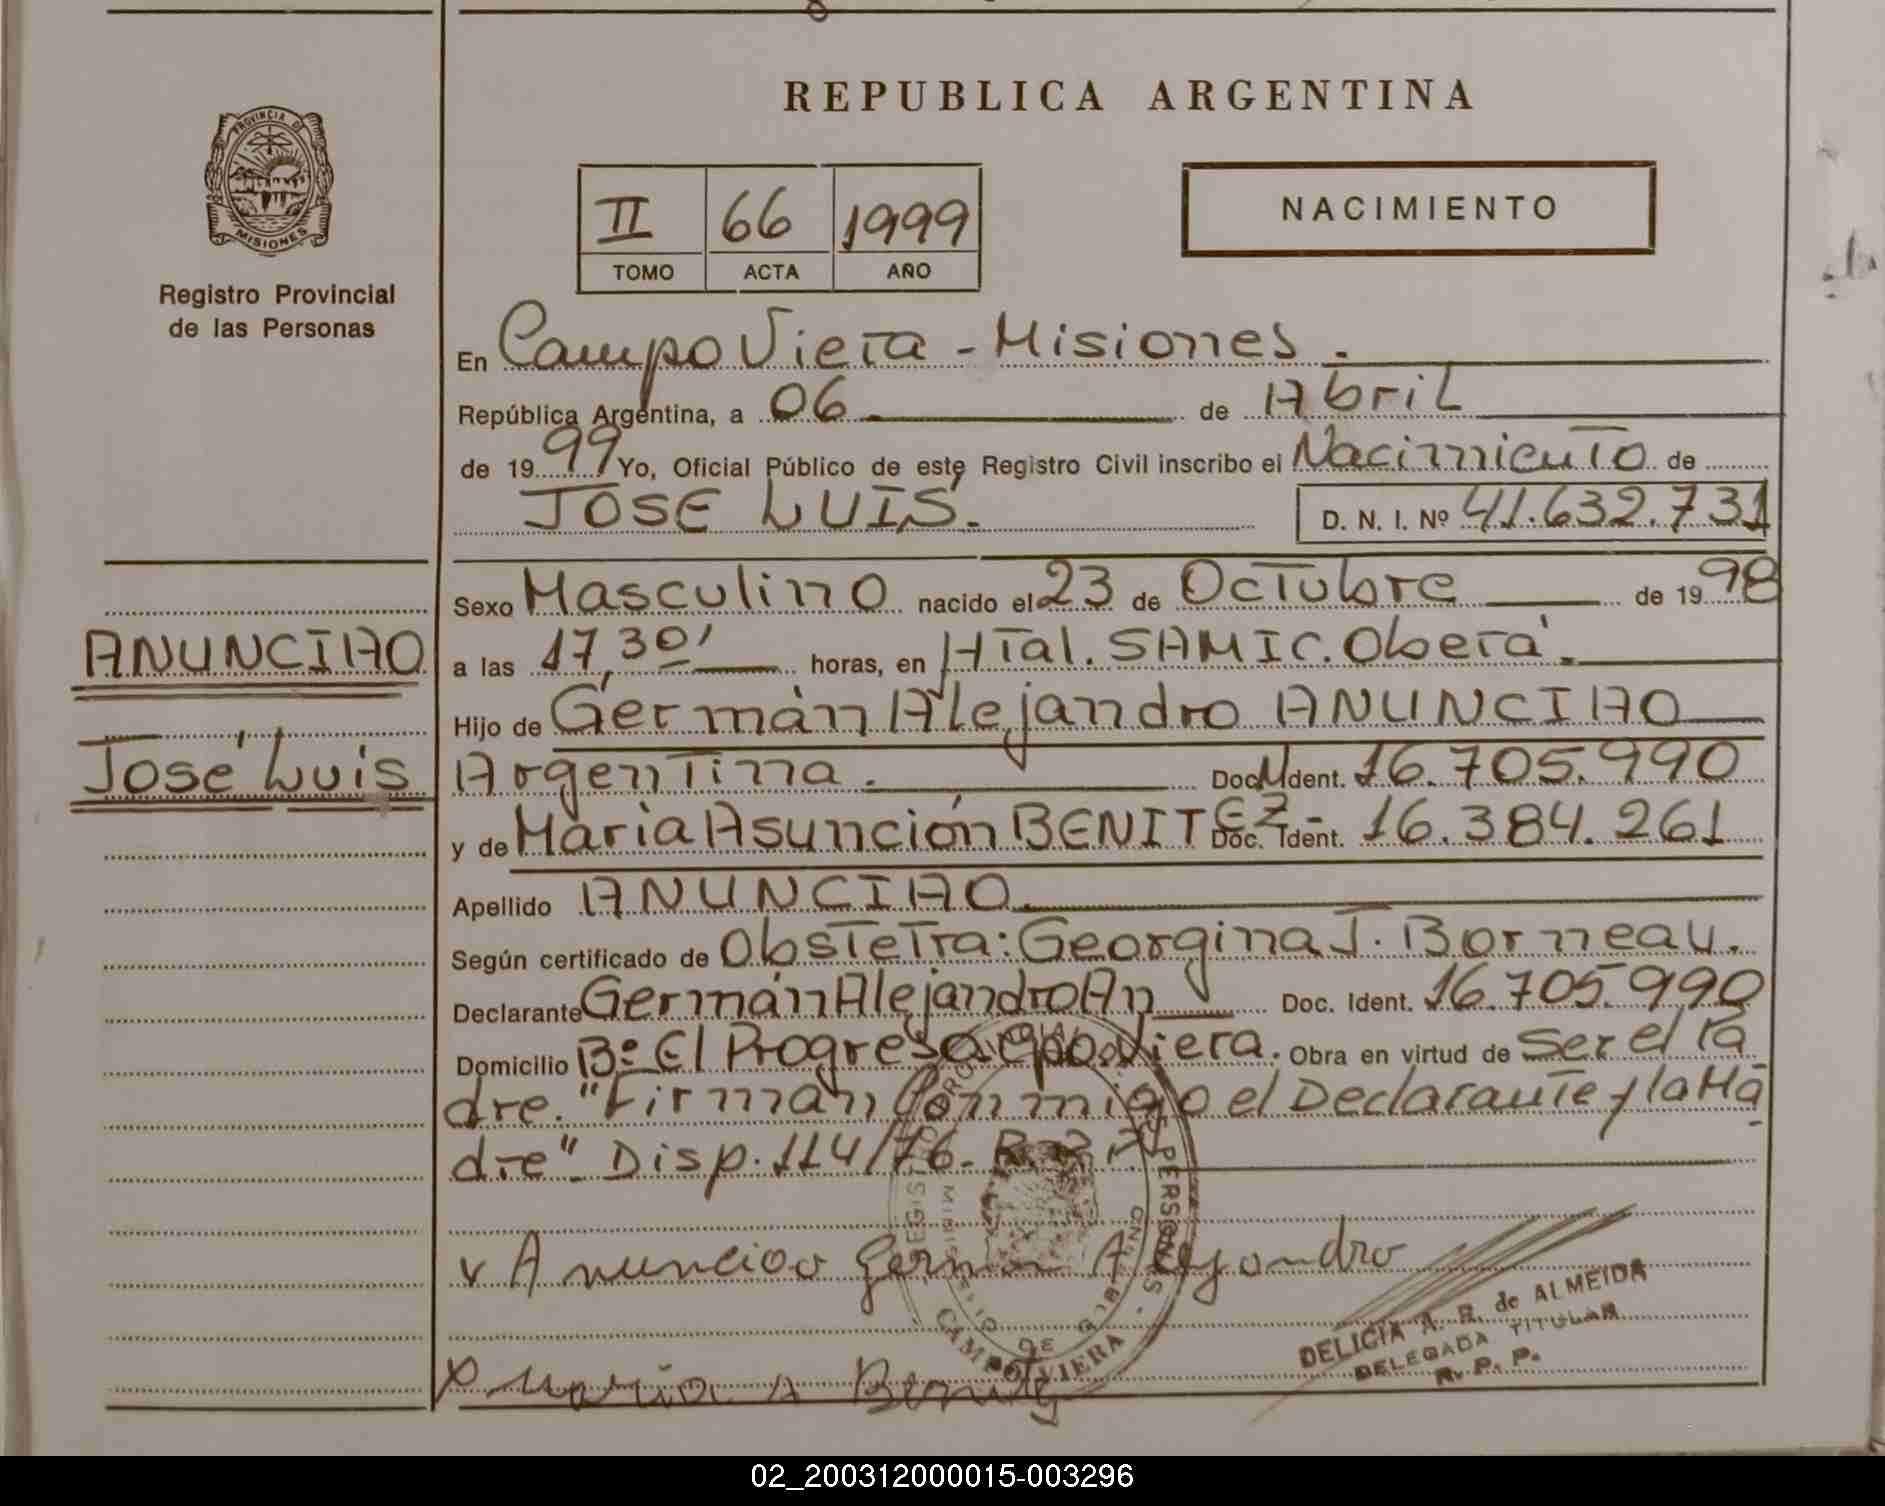 REPUBLICA ARGENTINA
PROVINCIA DE
MISIONES
Registro Provincial
de las Personas
II 66 1999
TOMO ACTA AÑO
NACIMIENTO
En Campo Viera - Misiones.
República Argentina, a 06. de Abril
de 1999 Yo, Oficial Público de este Registro Civil inscribo el Nacimiento de
JOSÉ LUIS. D. N. I. Nº 41.632.731
Sexo Masculino nacido el 23 de Octubre de 1998
ANUNCIAO
a las 17,30' horas, en Htal. SAMIC. Oberá.
Hijo de Germán Alejandro ANUNCIAO
José Luis
Argentina. Doc. N Ident. 16.705.990
y de María Asunción BENITEZ - Doc. Ident. 16.384.261
Apellido ANUNCIAO.
Según certificado de Obstetra: Georgina J. Borneau.
Declarante Germán Alejandro An Doc. Ident. 16.705.990
Domicilio Bº El Progreso Cpo. Viera. Obra en virtud de Ser el Pa
dre. "Firman Conmigo el Declarante y la Ma
dre" Disp. 114/76.
Anunciao German Alejandro
Maria A Benitez
CAMPO VIERA
DELICIA A. R. de ALMEIDA
DELEGADA TITULAR
R. P. P.
02_200312000015-003296